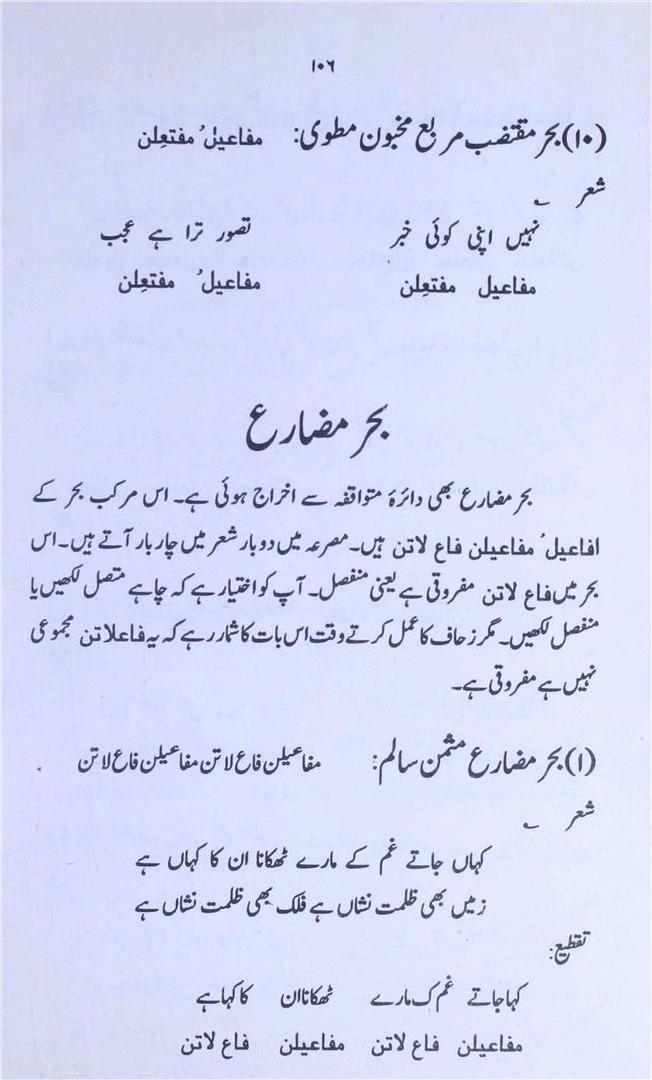 ۱۰۶
(۱۰) بحر مقتضب مربع مخبون مطوی: مفاعیلُ مفتعِلن
شعر ؎
نہیں اپنی کوئی خبر تصور ترا ہے عجب
مفاعیل مفتعِلن مفاعیلُ مفتعِلن
بحر مضارع
بحر مضارع بھی دائرۂ متوافقہ سے اخراج ہوئی ہے۔ اس مرکب بحر کے
افاعیلُ مفاعیلن فاع لاتن ہیں۔ مصرعہ میں دو بار شعر میں چار بار آتے ہیں۔ اس
بحر میں فاع لاتن مفروقی ہے یعنی منفصل۔ آپ کو اختیار ہے کہ چاہے متصل لکھیں یا
منفصل لکھیں۔ مگر زحاف کا عمل کرتے وقت اس بات کا شمار رہے کہ یہ فاعلاتن مجموعی
نہیں ہے مفروقی ہے۔
(۱) بحر مضارع مثمن سالم: مفاعیلن فاع لاتن مفاعیلن فاع لاتن
شعر ؎
کہاں جاتے غم کے مارے ٹھکانا ان کا کہاں ہے
زمیں بھی ظلمت نشاں ہے فلک بھی ظلمت نشاں ہے
تقطیع:
کہاجاتے غم ک مارے ٹھکاناان کا کہاہے
مفاعیلن فاع لاتن مفاعیلن فاع لاتن